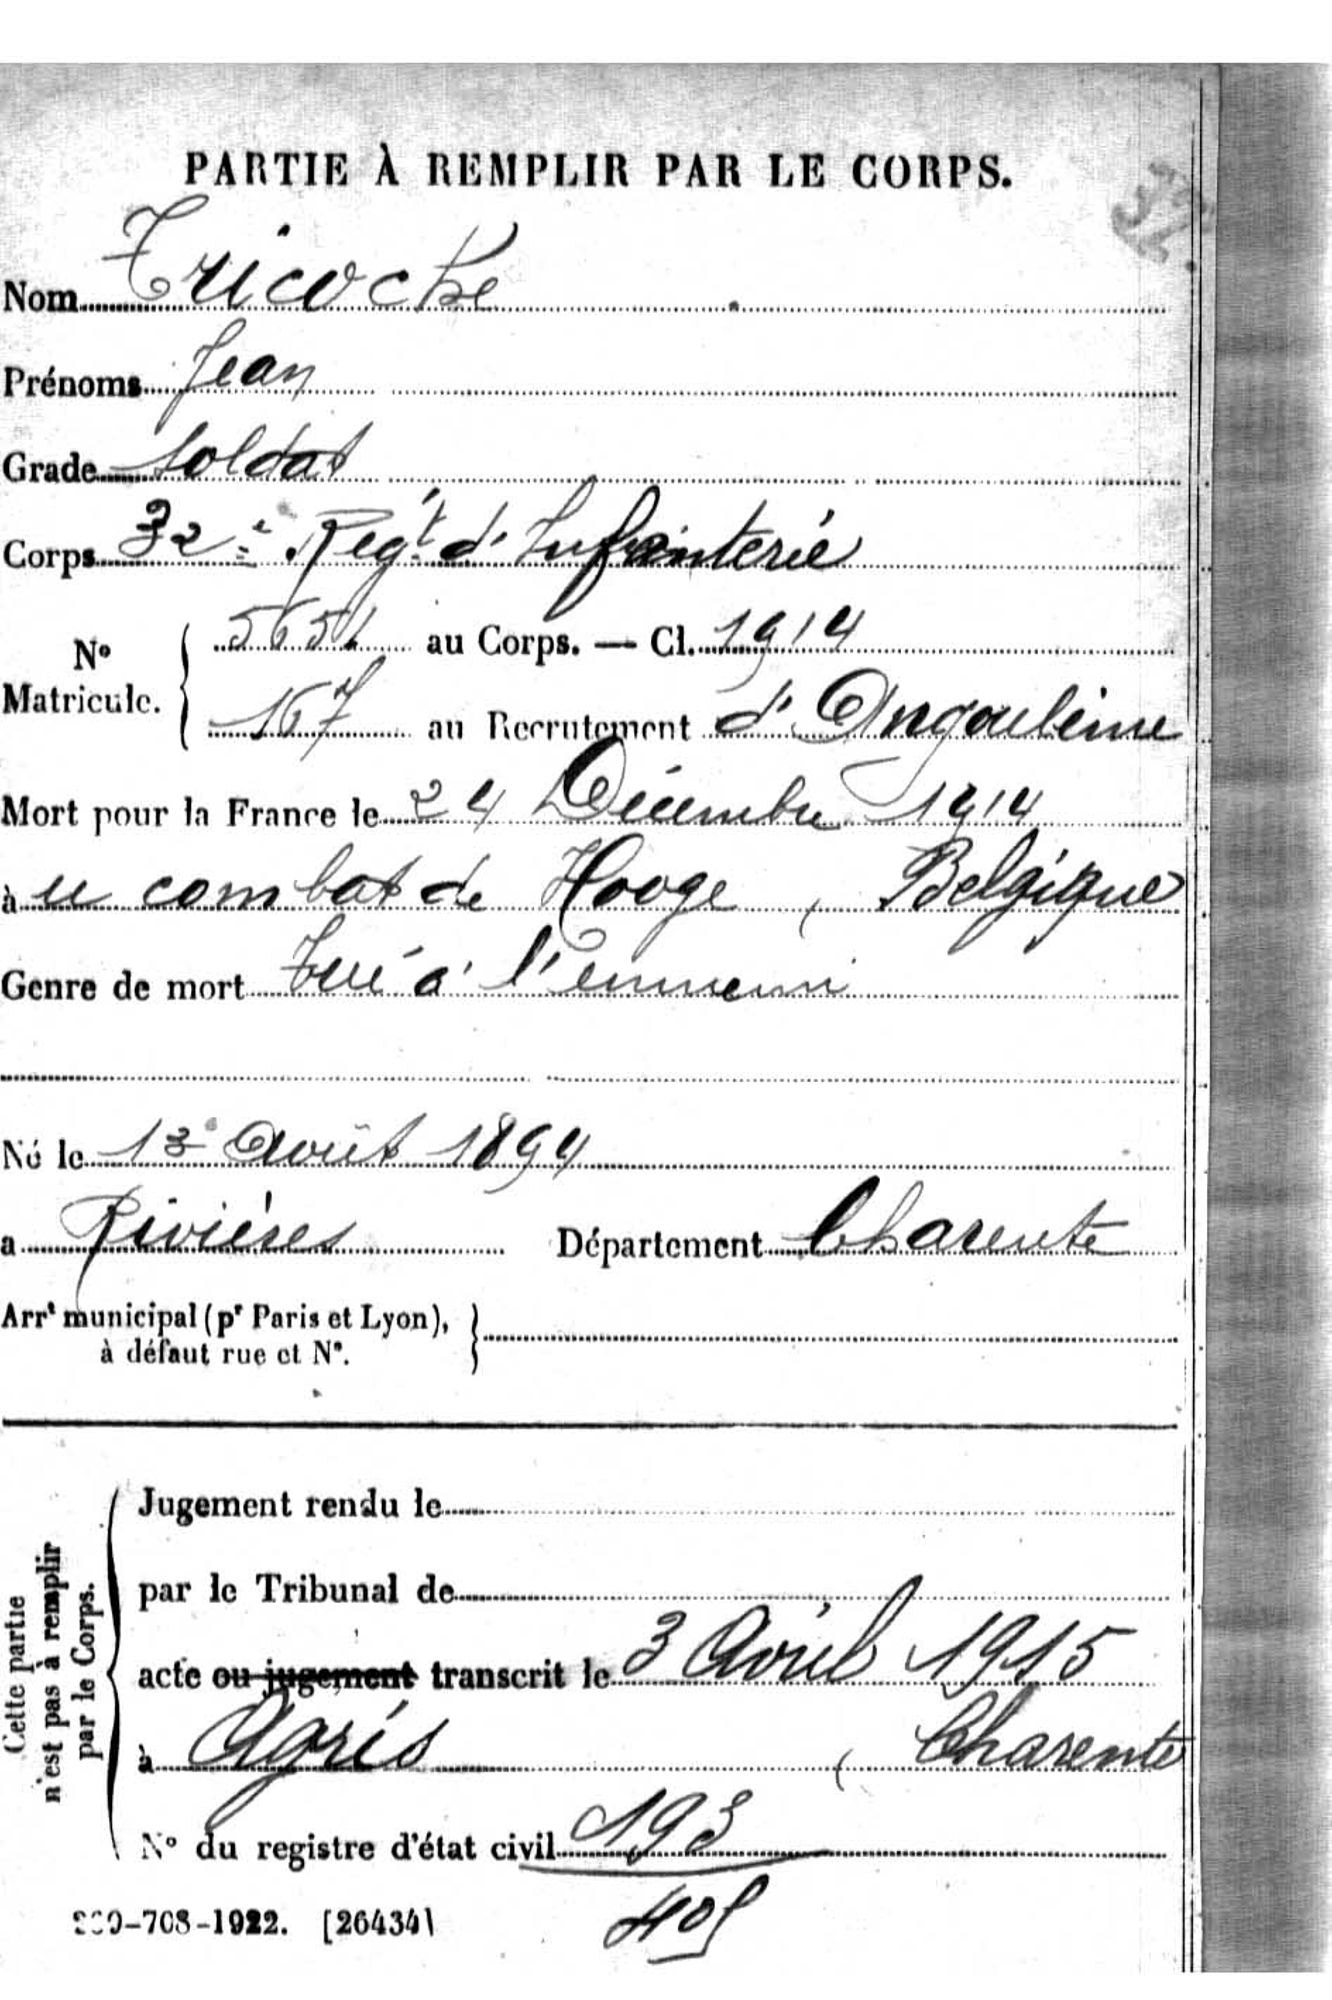 PARTIE À REMPLIR PAR LE CORPS.
32.
Nom Tricoche
Prénoms Jean
Grade Soldat
Corps 32e Reg.t d'Infanterie
No Matricule. { 5651 au Corps. — Cl. 1914
167 au Recrutement d'Angoulême
Mort pour la France le 24 Décembre 1914
à u combat de Hooge, Belgique
Genre de mort Tué à l'ennemi
Né le 13 Août 1894
à Rivières Département Charente
Arrt municipal (pr Paris et Lyon), }
à défaut rue et No.
Cette partie
n'est pas à remplir
par le Corps.
Jugement rendu le
par le Tribunal de
acte ou jugement transcrit le 3 Avril 1915
à Agris ( Charente
No du registre d'état civil 193
-708-1922. [26434]